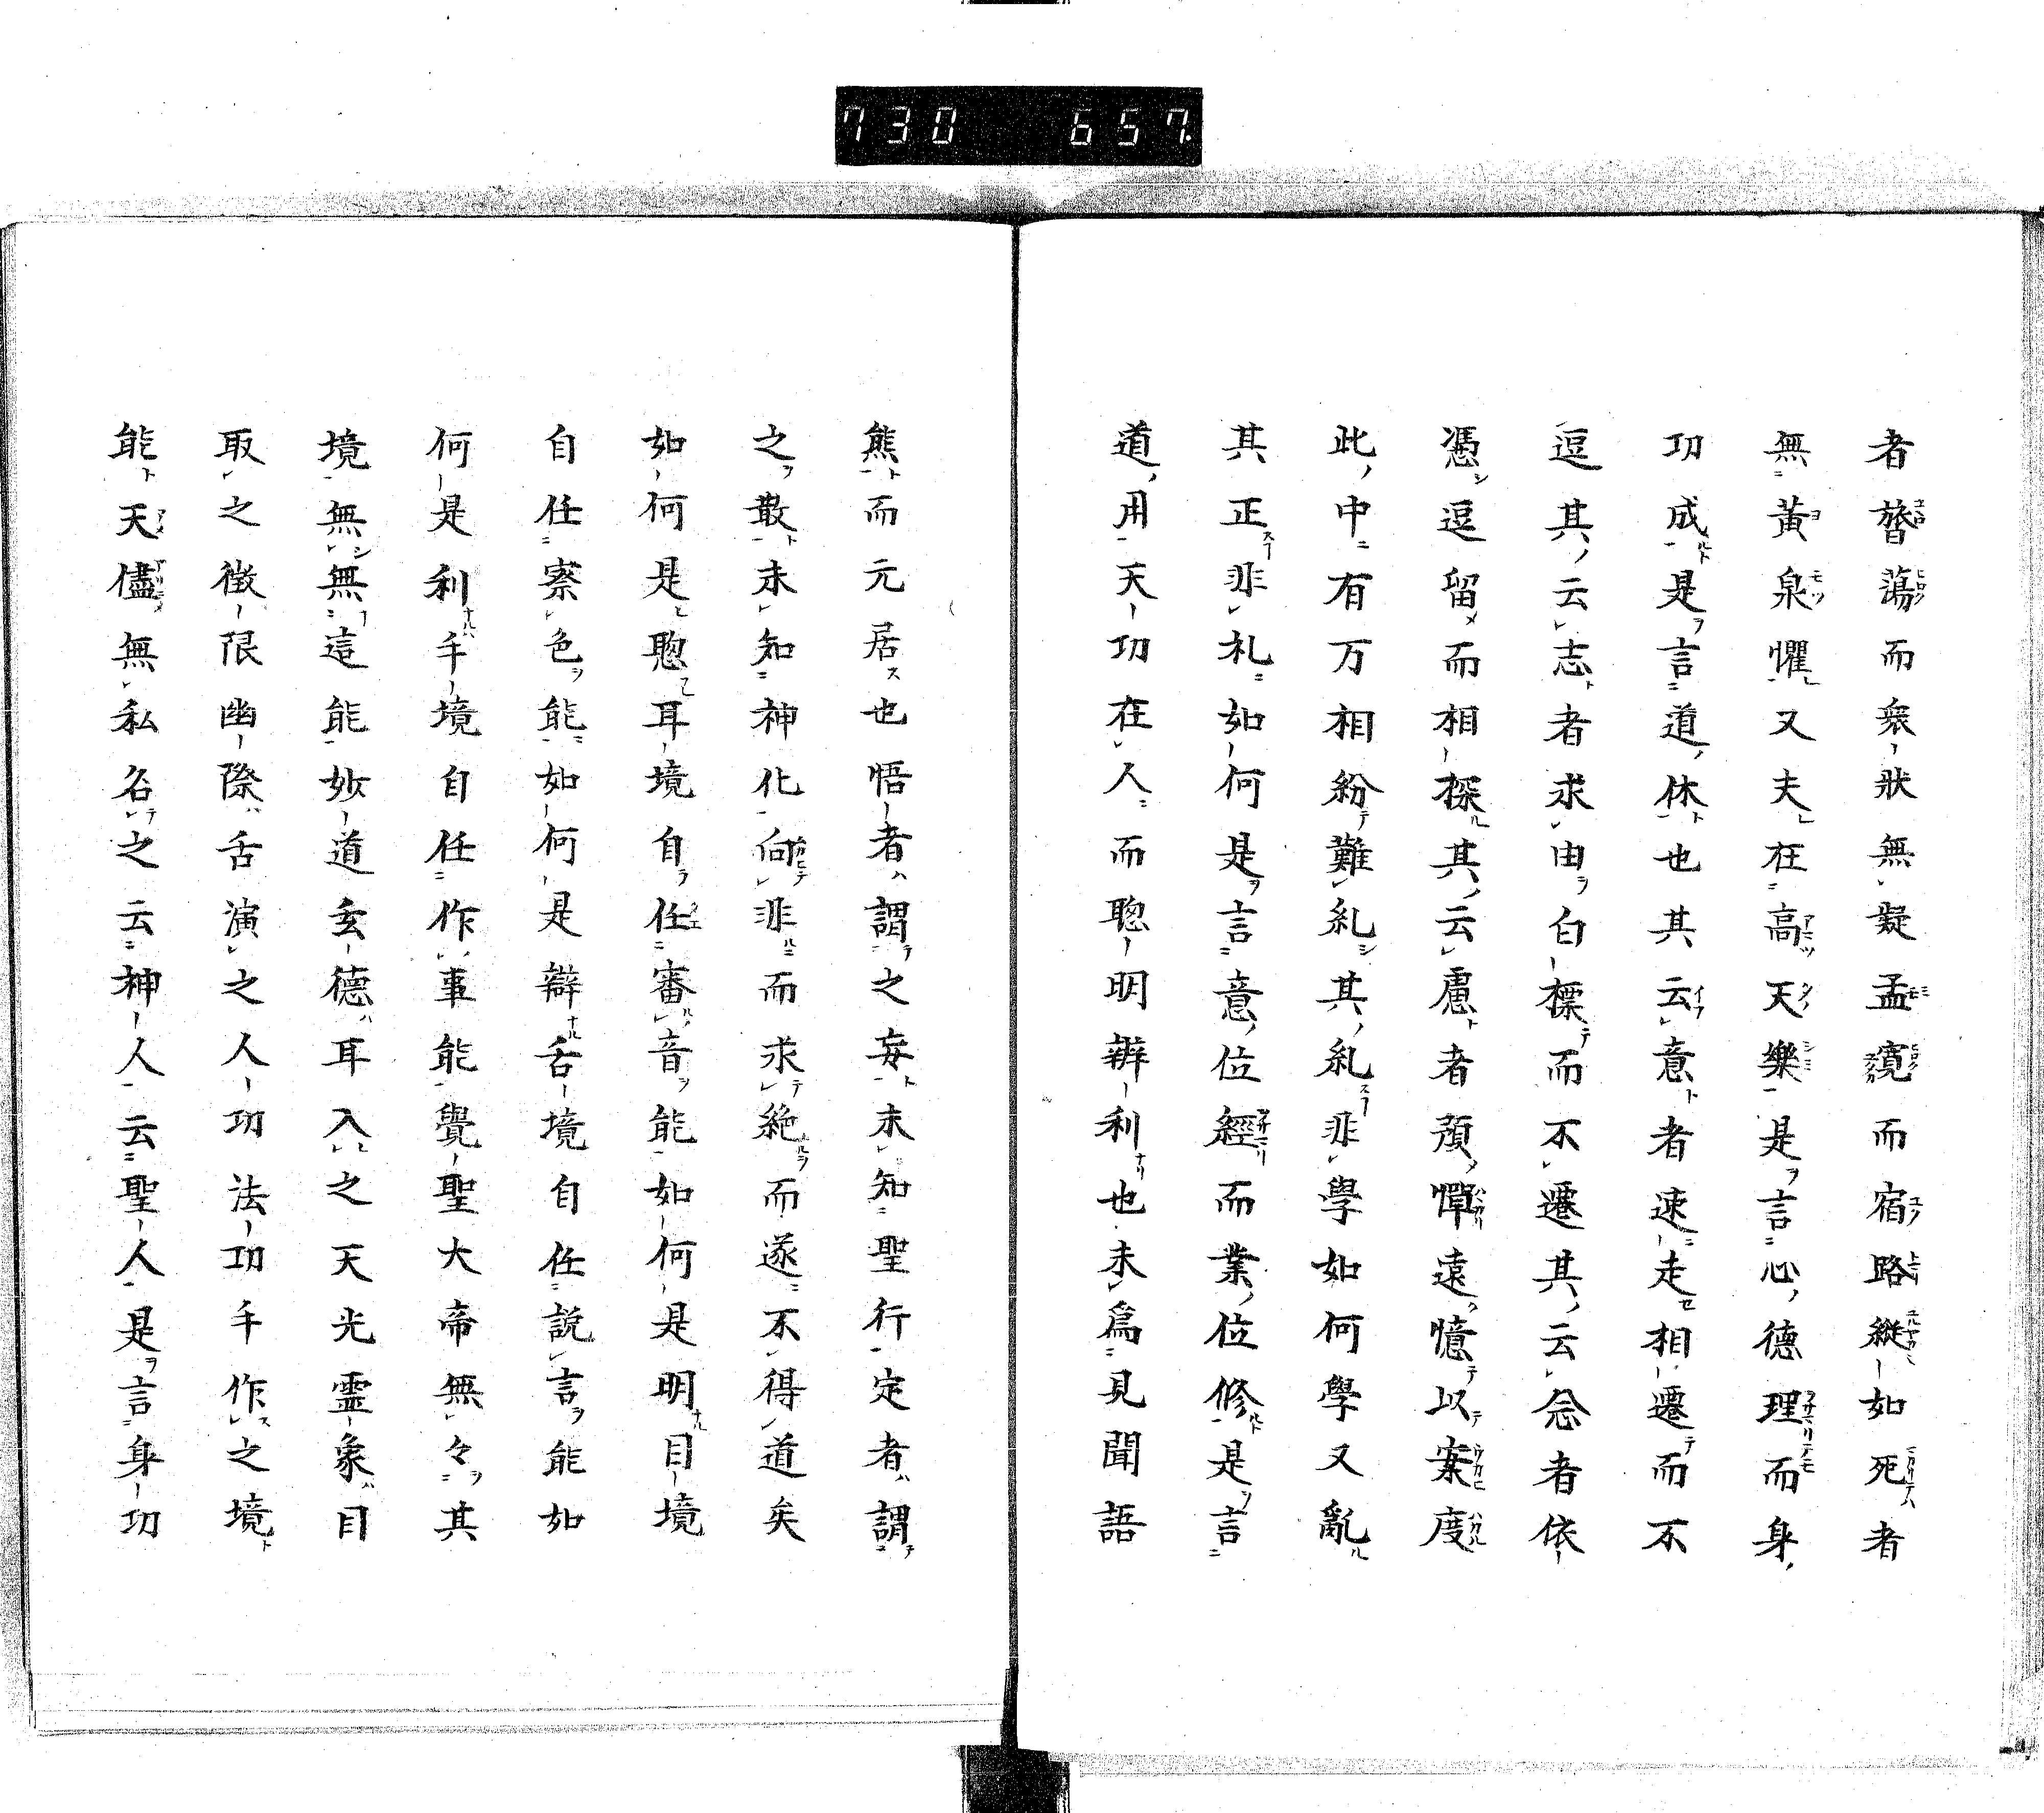 730 657.
者䐺蕩而衆狀無礙孟寬而宿路縱如死者
無黃泉懼又夫在高天樂是言心德理而身
功成是言道休也其云意者速走相遷而不
逗其云志者求由白標而不遷其云念者依
憑逗留而相探其云慮者預憚遠憶以案度
此中有万相紛難糺其糺非學如何學又亂
其正非礼如何是言意位經而業位修是言
道用天功在人而聰明辨利也未爲見聞語
熊而元居也悟者謂之妄未知聖行定者謂
之散未知神化向非而求絶而遂不得道矣
如何是聰耳境自任審音能如何是明目境
自任察色能如何是辯舌境自任說言能如
何是利手境自任作事能覺聖大帝無々其
境無無這能妙道玄德耳入之天光霊象目
取之徴限幽際舌演之人功法功手作之境
能天儘無私名之云神人云聖人是言身功